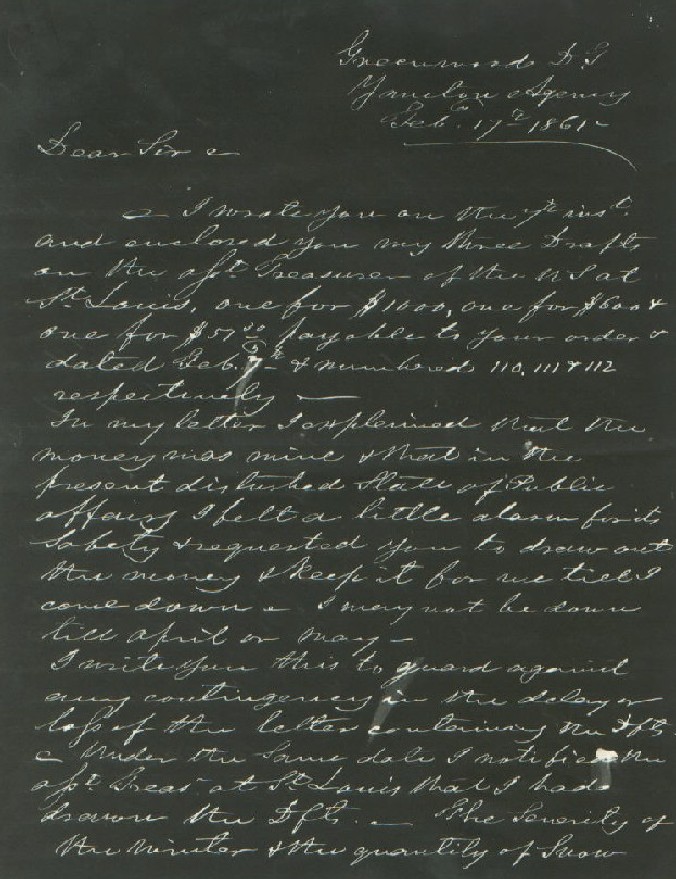 Greenwood D.T.
Yancton Agency
Feb. 17th 1861 -
Dear Sir -
- I wrote you on the 7th inst.
and enclosed you my three Drafts
on the asst. Treasurer of the US at
St. Louis, one for $1000, one for $600 &
one for $51 payable to your order &
dated Feb. 7th & numbered 110, 111 & 112
respectively -
In my letter I explained that the
money was mine & that in the
present disturbed State of Public
affairs I felt a little alarm for its
Safety & requested you to draw out
the money & keep it for me till I
come down - I may not be down
till April or May -
I write you this to guard against
any contingency in the delay or
loss of the letter containing the Dfts.
- Under the Same date I notified the
asst. Treas. at St. Louis that I had
drawn the Dfts. - The Severity of
the Winter & the quantity of Snow